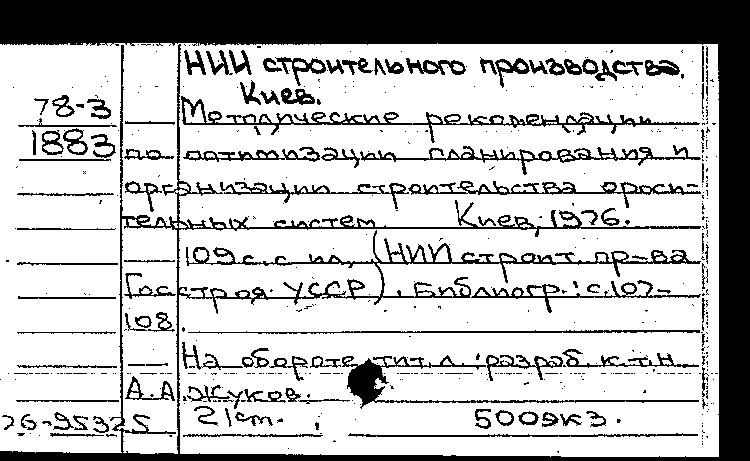 НИИ строительного производства.
Киев.
78-3
1883
Методические рекомендации
по оптимизации планирования и
организации строительства ороси-
тельных систем. Киев, 1976.
109 с. с ил. (НИИ строит. пр-ва
Госстроя УССР). Библиогр.: с. 107-
108.
На обороте тит. л.: разраб. к.т.н.
А.А. Жуков.
76-95325
5009 кз.